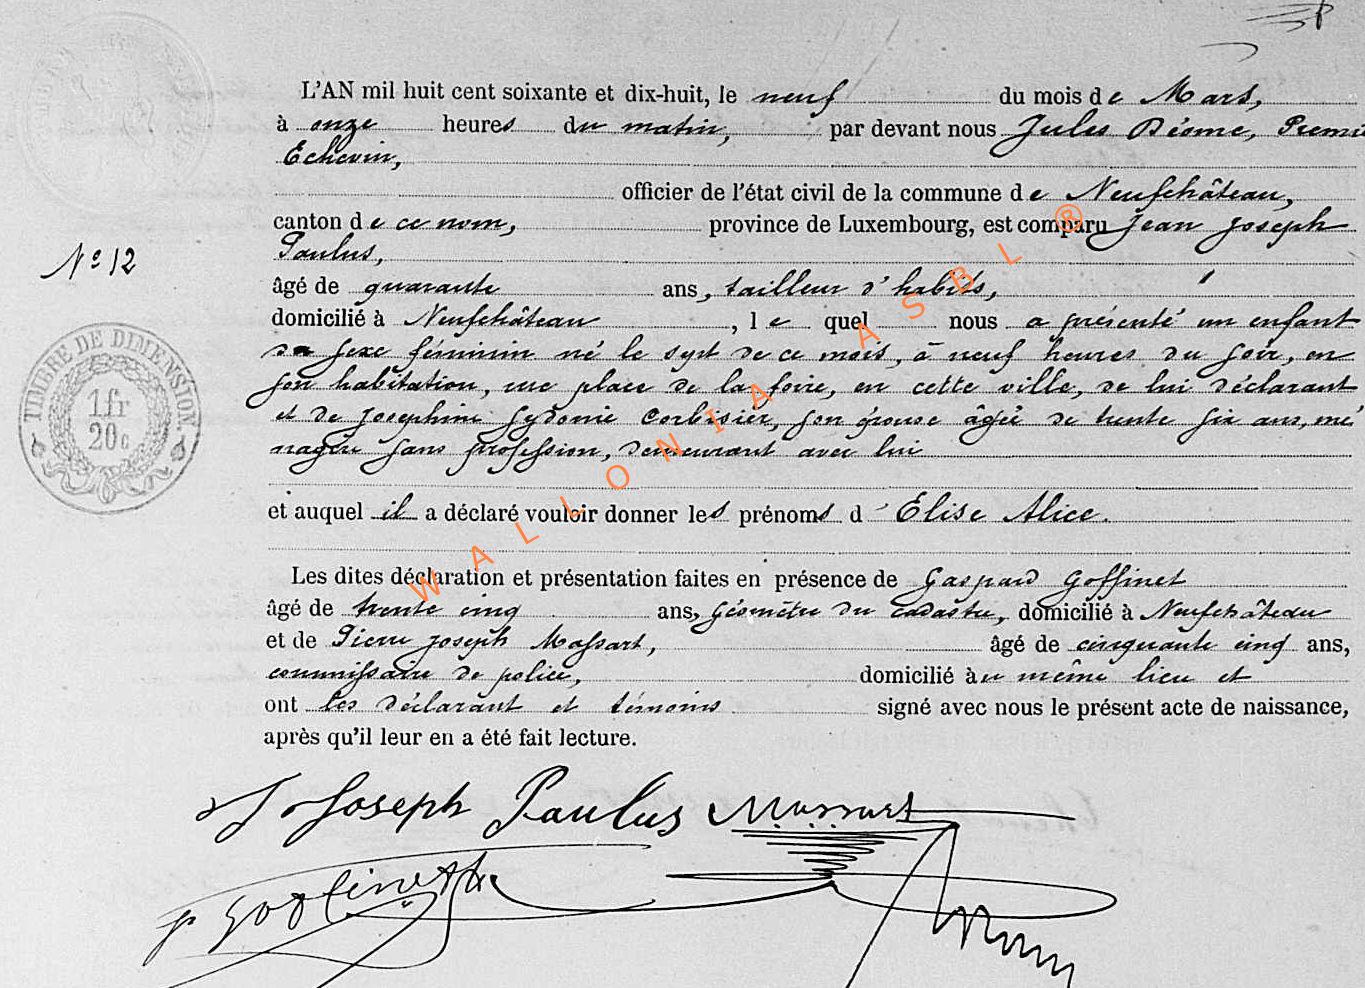 L'AN mil huit cent soixante et dix-huit, le neuf du mois de Mars,
à onze heures du matin, par devant nous Jules Déome, Premi
Echevin,
officier de l'état civil de la commune de Neufchâteau,
canton de ce nom, province de Luxembourg, est comparu Jean Joseph
Paulus,
N° 12
âgé de quarante ans, tailleur d'habits,
domicilié à Neufchâteau, lequel nous a présenté un enfant
du sexe féminin né le sept de ce mois, à neuf heures du soir, en
son habitation, rue place de la foire, en cette ville, de lui déclarant
et de Josephine Sydonie Corbisier, son épouse âgée de trente six ans, mé
nagère sans profession, demeurant avec lui
TIMBRE DE DIMENSION.
1 fr
20 c
et auquel il a déclaré vouloir donner les prénoms d'Elise Alice.
Les dites déclaration et présentation faites en présence de Gaspard Goffinet
âgé de trente cinq ans, géomètre du cadastre, domicilié à Neufchâteau
et de Pierre Joseph Massart, âgé de cinquante cinq ans,
commissaire de police, domicilié au même lieu et
ont les déclarant et témoins signé avec nous le présent acte de naissance,
après qu'il leur en a été fait lecture.
J Joseph Paulus Massart
g Goffinet
WALLONIA ASBL ®